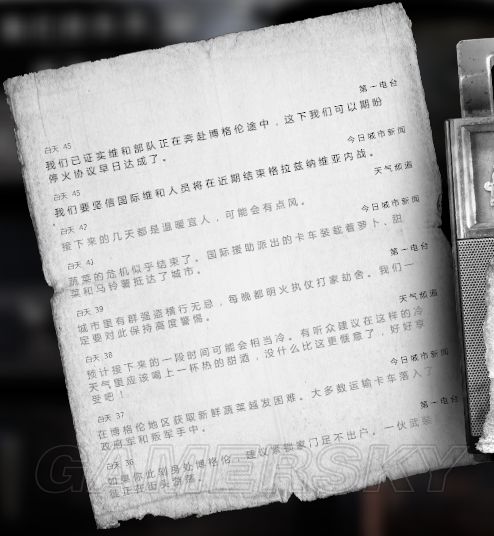 第一电台
白天 45
我们已证实维和部队正在奔赴博格伦途中，这下我们可以期盼
停火协议早日达成了。
今日城市新闻
白天 45
我们要坚信国际维和人员将在近期结束格拉兹纳维亚内战。
天气频道
白天 42
接下来的几天都是温暖宜人，可能会有点风。
今日城市新闻
白天 41
蔬菜的危机似乎结束了。国际援助派出的卡车装载着萝卜、甜
菜和马铃薯抵达了城市。
第一电台
白天 39
城市里有群强盗横行无忌，每晚都明火执仗打家劫舍。我们一
定要对此保持高度警惕。
天气频道
白天 38
预计接下来的一段时间可能会相当冷。有听众建议在这样的冷
天气里应该喝上一杯热的甜酒，没什么比这更惬意了，好好享
受吧！
今日城市新闻
白天 37
在博格伦地区获取新鲜蔬菜越发困难。大多数运输卡车落入了
政府军和叛军手中。
第一电台
白天 36
如果你此刻身处博格伦，建议紧锁家门足不出户。一伙武装
正在街头游荡。
GAMERSKY